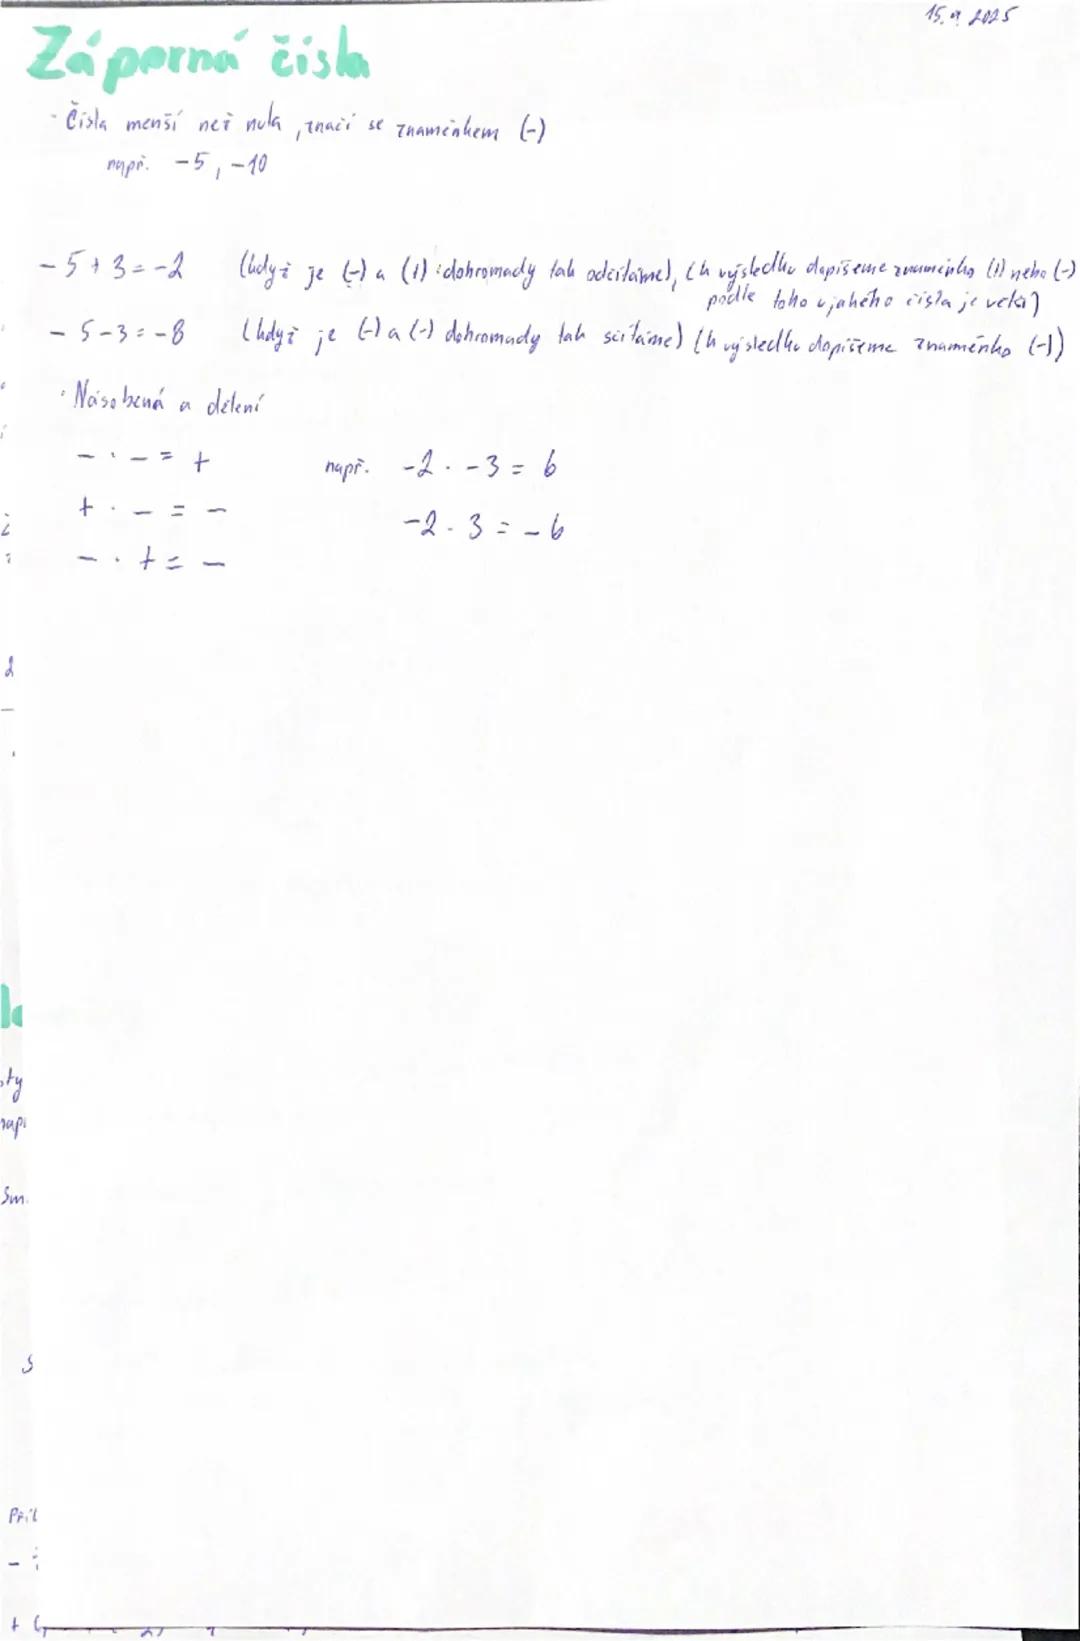 15. 9. 2025
Záporná čísla
· Čísla menší než nula, značí se znaménkem (-)
např. -5, -10
-5 + 3 = -2 (když je (-) a (+) dohromady tak odčítáme), (k výsledku dopíšeme znaménko (+) nebo (-)
podle toho u jakého čísla je
-5 - 3 = -8 (když je (-) a (-) dohromady tak sčítáme) (k výsledku dopíšeme znaménko (-))
· Násobená a dělení
- · - = + např. -2 · -3 = 6
+ · - = - -2 · 3 = -6
- · + = -